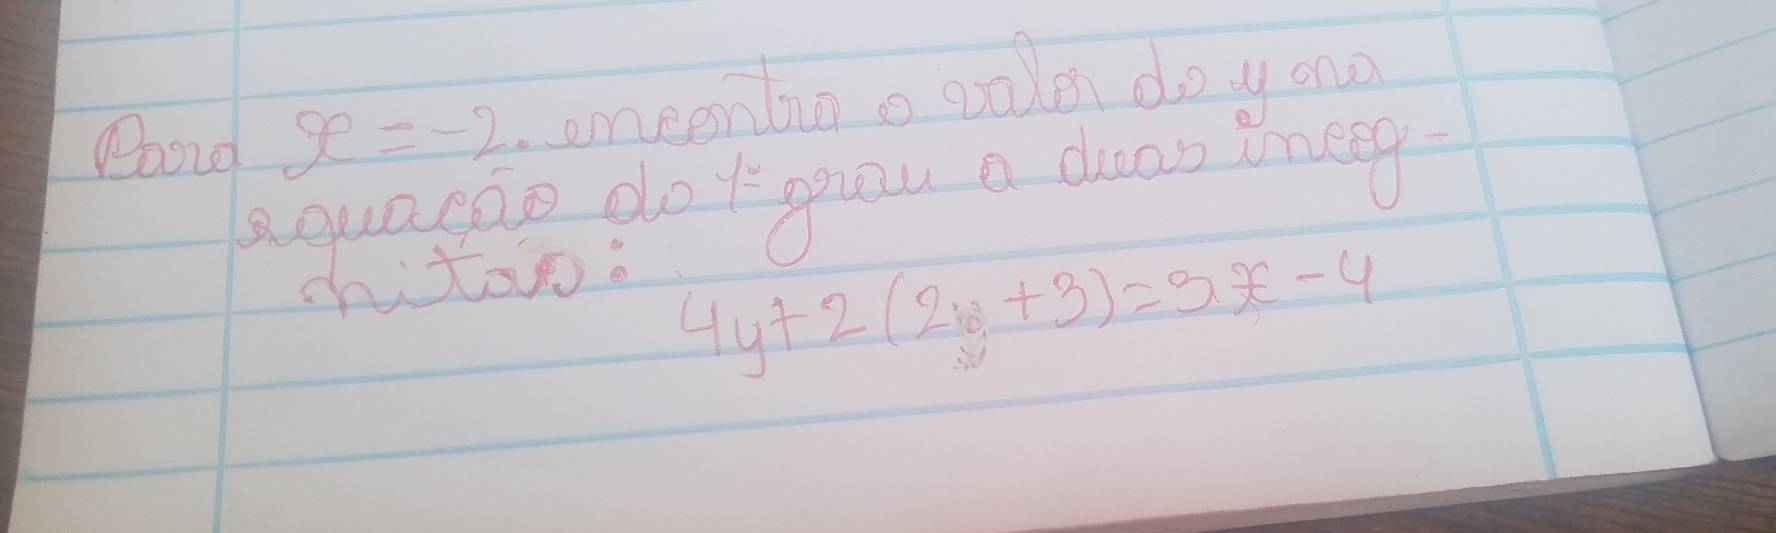 Para x = -2. encontra o valor do y na
equação do 1º grau a duas incóg-
nitas:
4y + 2 (2y + 3) = 3x - 4